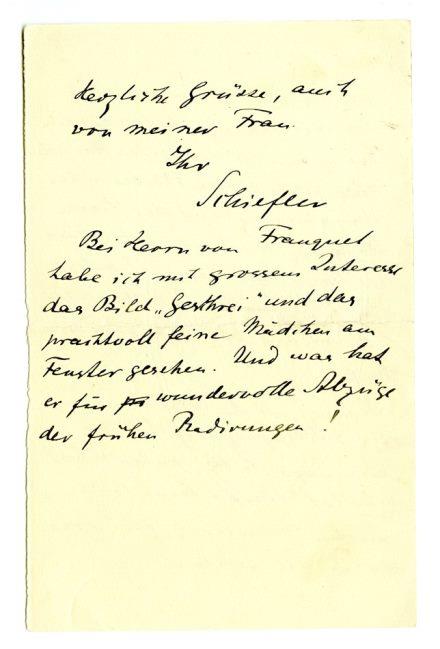 Herzliche Grüsse, auch
von meiner Frau.
Ihr
Schiefler
Bei Herrn von Franquet
habe ich mit grossem Interesse
das Bild „Geschrei" und das
prachtvoll feine Mädchen am
Fenster gesehen. Und was hat
er für wundervolle Abzüge
der frühen Radirungen!